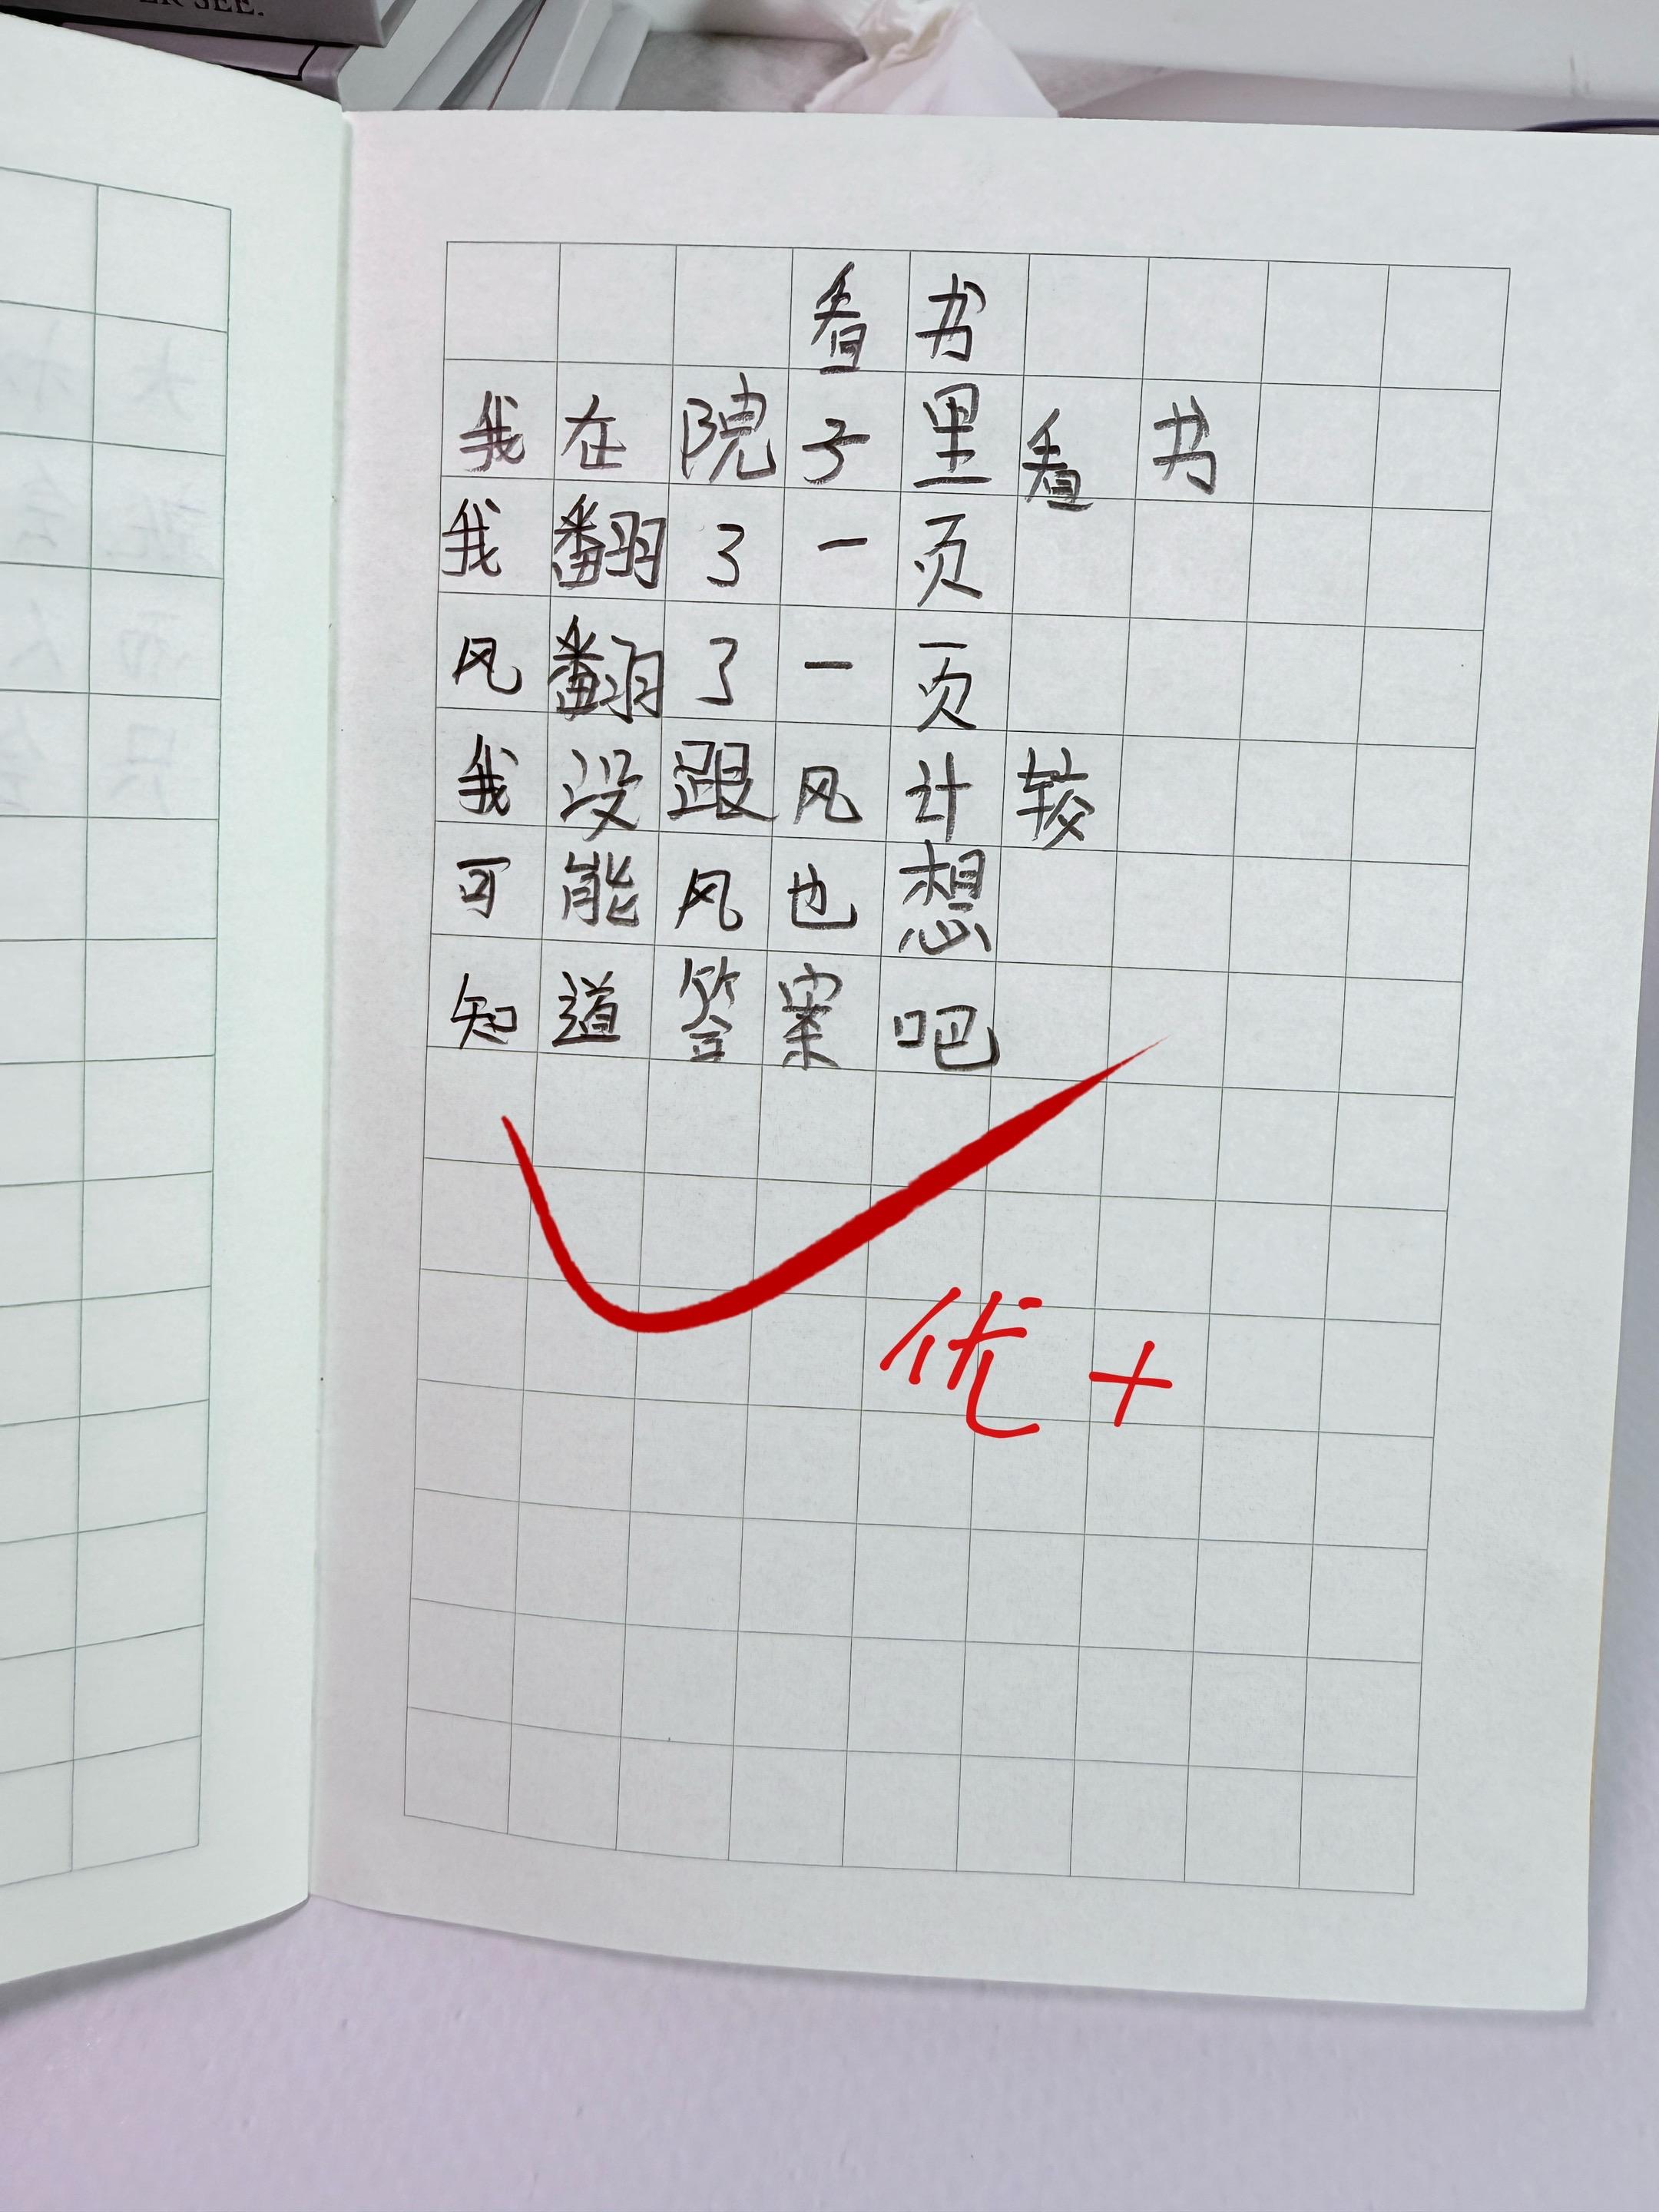 ER SEE.
看书
我在院子里看书
我翻了一页
风翻了一页
我没跟风计较
可能风也想
知道答案吧
优+